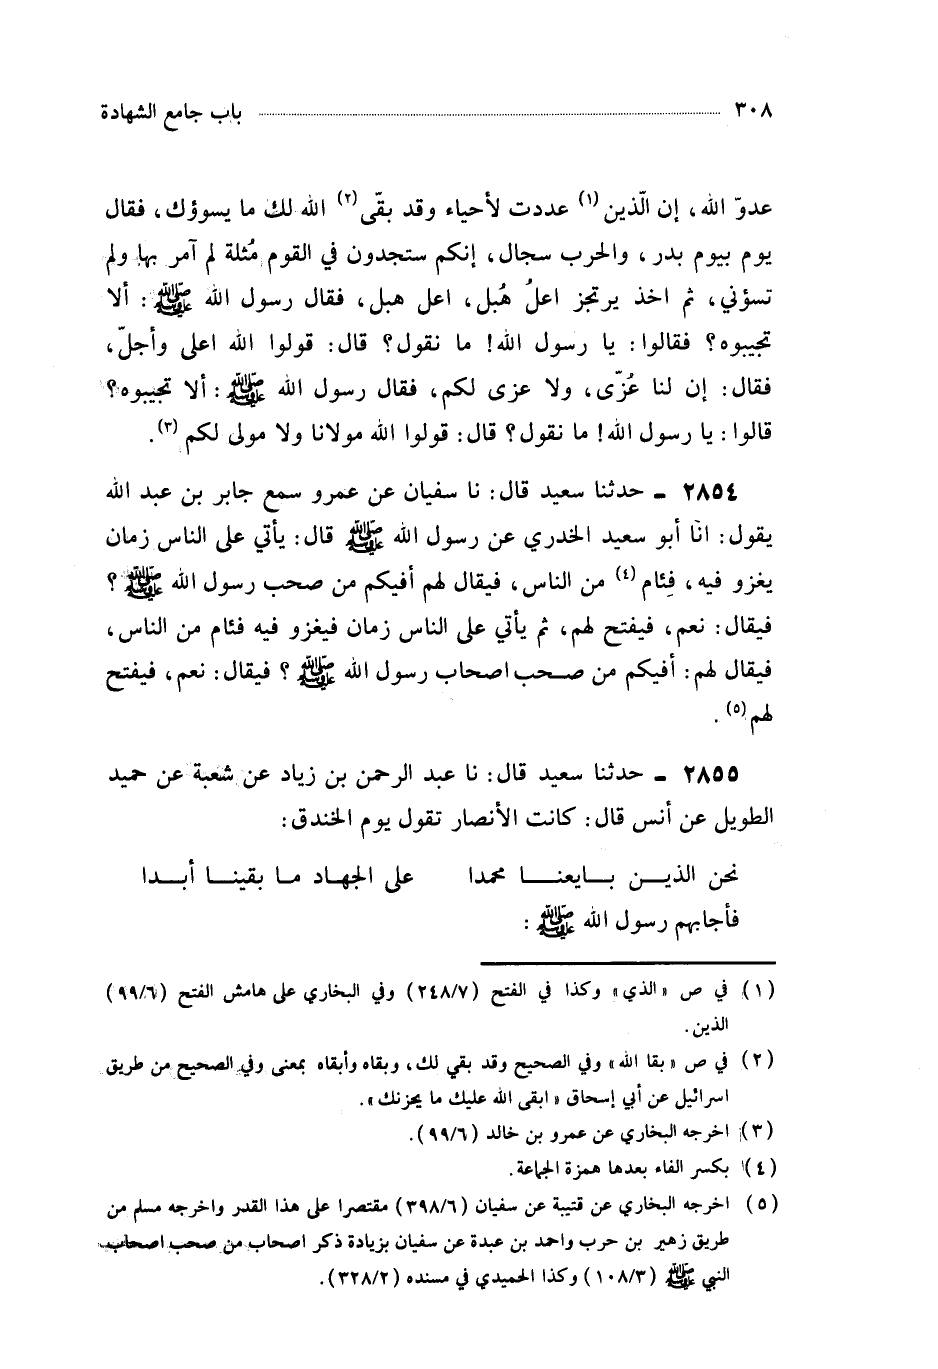 ٣٠٨ باب جامع الشهادة
عدوّ الله، إن الّذين (١) عددت لأحياء وقد بقّى (٢) الله لك ما يسوؤك، فقال
يوم بيوم بدر، والحرب سجال، إنكم ستجدون في القوم مُثلة لم آمر بها ولم
تسؤني، ثم اخذ يرتجز اعلُ هُبل، اعل هبل، فقال رسول الله ﷺ: ألا
تجيبوه؟ فقالوا: يا رسول الله! ما نقول؟ قال: قولوا الله اعلى وأجلّ،
فقال: إن لنا عُزّى، ولا عزى لكم، فقال رسول الله ﷺ: ألا تجيبوه؟
قالوا: يا رسول الله! ما نقول؟ قال: قولوا الله مولانا ولا مولى لكم (٣).
٢٨٥٤ ـ حدثنا سعيد قال: نا سفيان عن عمرو سمع جابر بن عبد الله
يقول: انّا أبو سعيد الخدري عن رسول الله ﷺ قال: يأتي على الناس زمان
يغزو فيه، فِئام (٤) من الناس، فيقال لهم أفيكم من صحب رسول الله ﷺ؟
فيقال: نعم، فيفتح لهم، ثم يأتي على الناس زمان فيغزو فيه فئام من الناس،
فيقال لهم: أفيكم من صـحب اصحاب رسول الله ﷺ؟ فيقال: نعم، فيفتح
لهم (٥).
٢٨٥٥ ـ حدثنا سعيد قال: نا عبد الرحمن بن زياد عن شعبة عن حميد
الطويل عن أنس قال: كانت الأنصار تقول يوم الخندق:
نحن الذيـن بـايعنـا محمدا على الجهـاد مـا بقينـا أبـدا
فأجابهم رسول الله ﷺ:
(١) في ص «الذي» وكذا في الفتح (٢٤٨/٧) وفي البخاري على هامش الفتح (٩٩/٦)
الذين.
(٢) في ص «بقا الله» وفي الصحيح وقد بقي لك، وبقاه وأبقاه بمعنى وفي الصحيح من طريق
اسرائيل عن أبي إسحاق «ابقى الله عليك ما يحزنك».
(٣) اخرجه البخاري عن عمرو بن خالد (٩٩/٦).
(٤) بكسر الفاء بعدها همزة الجماعة.
(٥) اخرجه البخاري عن قتيبة عن سفيان (٣٩٨/٦) مقتصرا على هذا القدر واخرجه مسلم من
طريق زهير بن حرب واحمد بن عبدة عن سفيان بزيادة ذكر اصحاب من صحب اصحاب
النبي ﷺ (١٠٨/٣) وكذا الحميدي في مسنده (٣٢٨/٢).